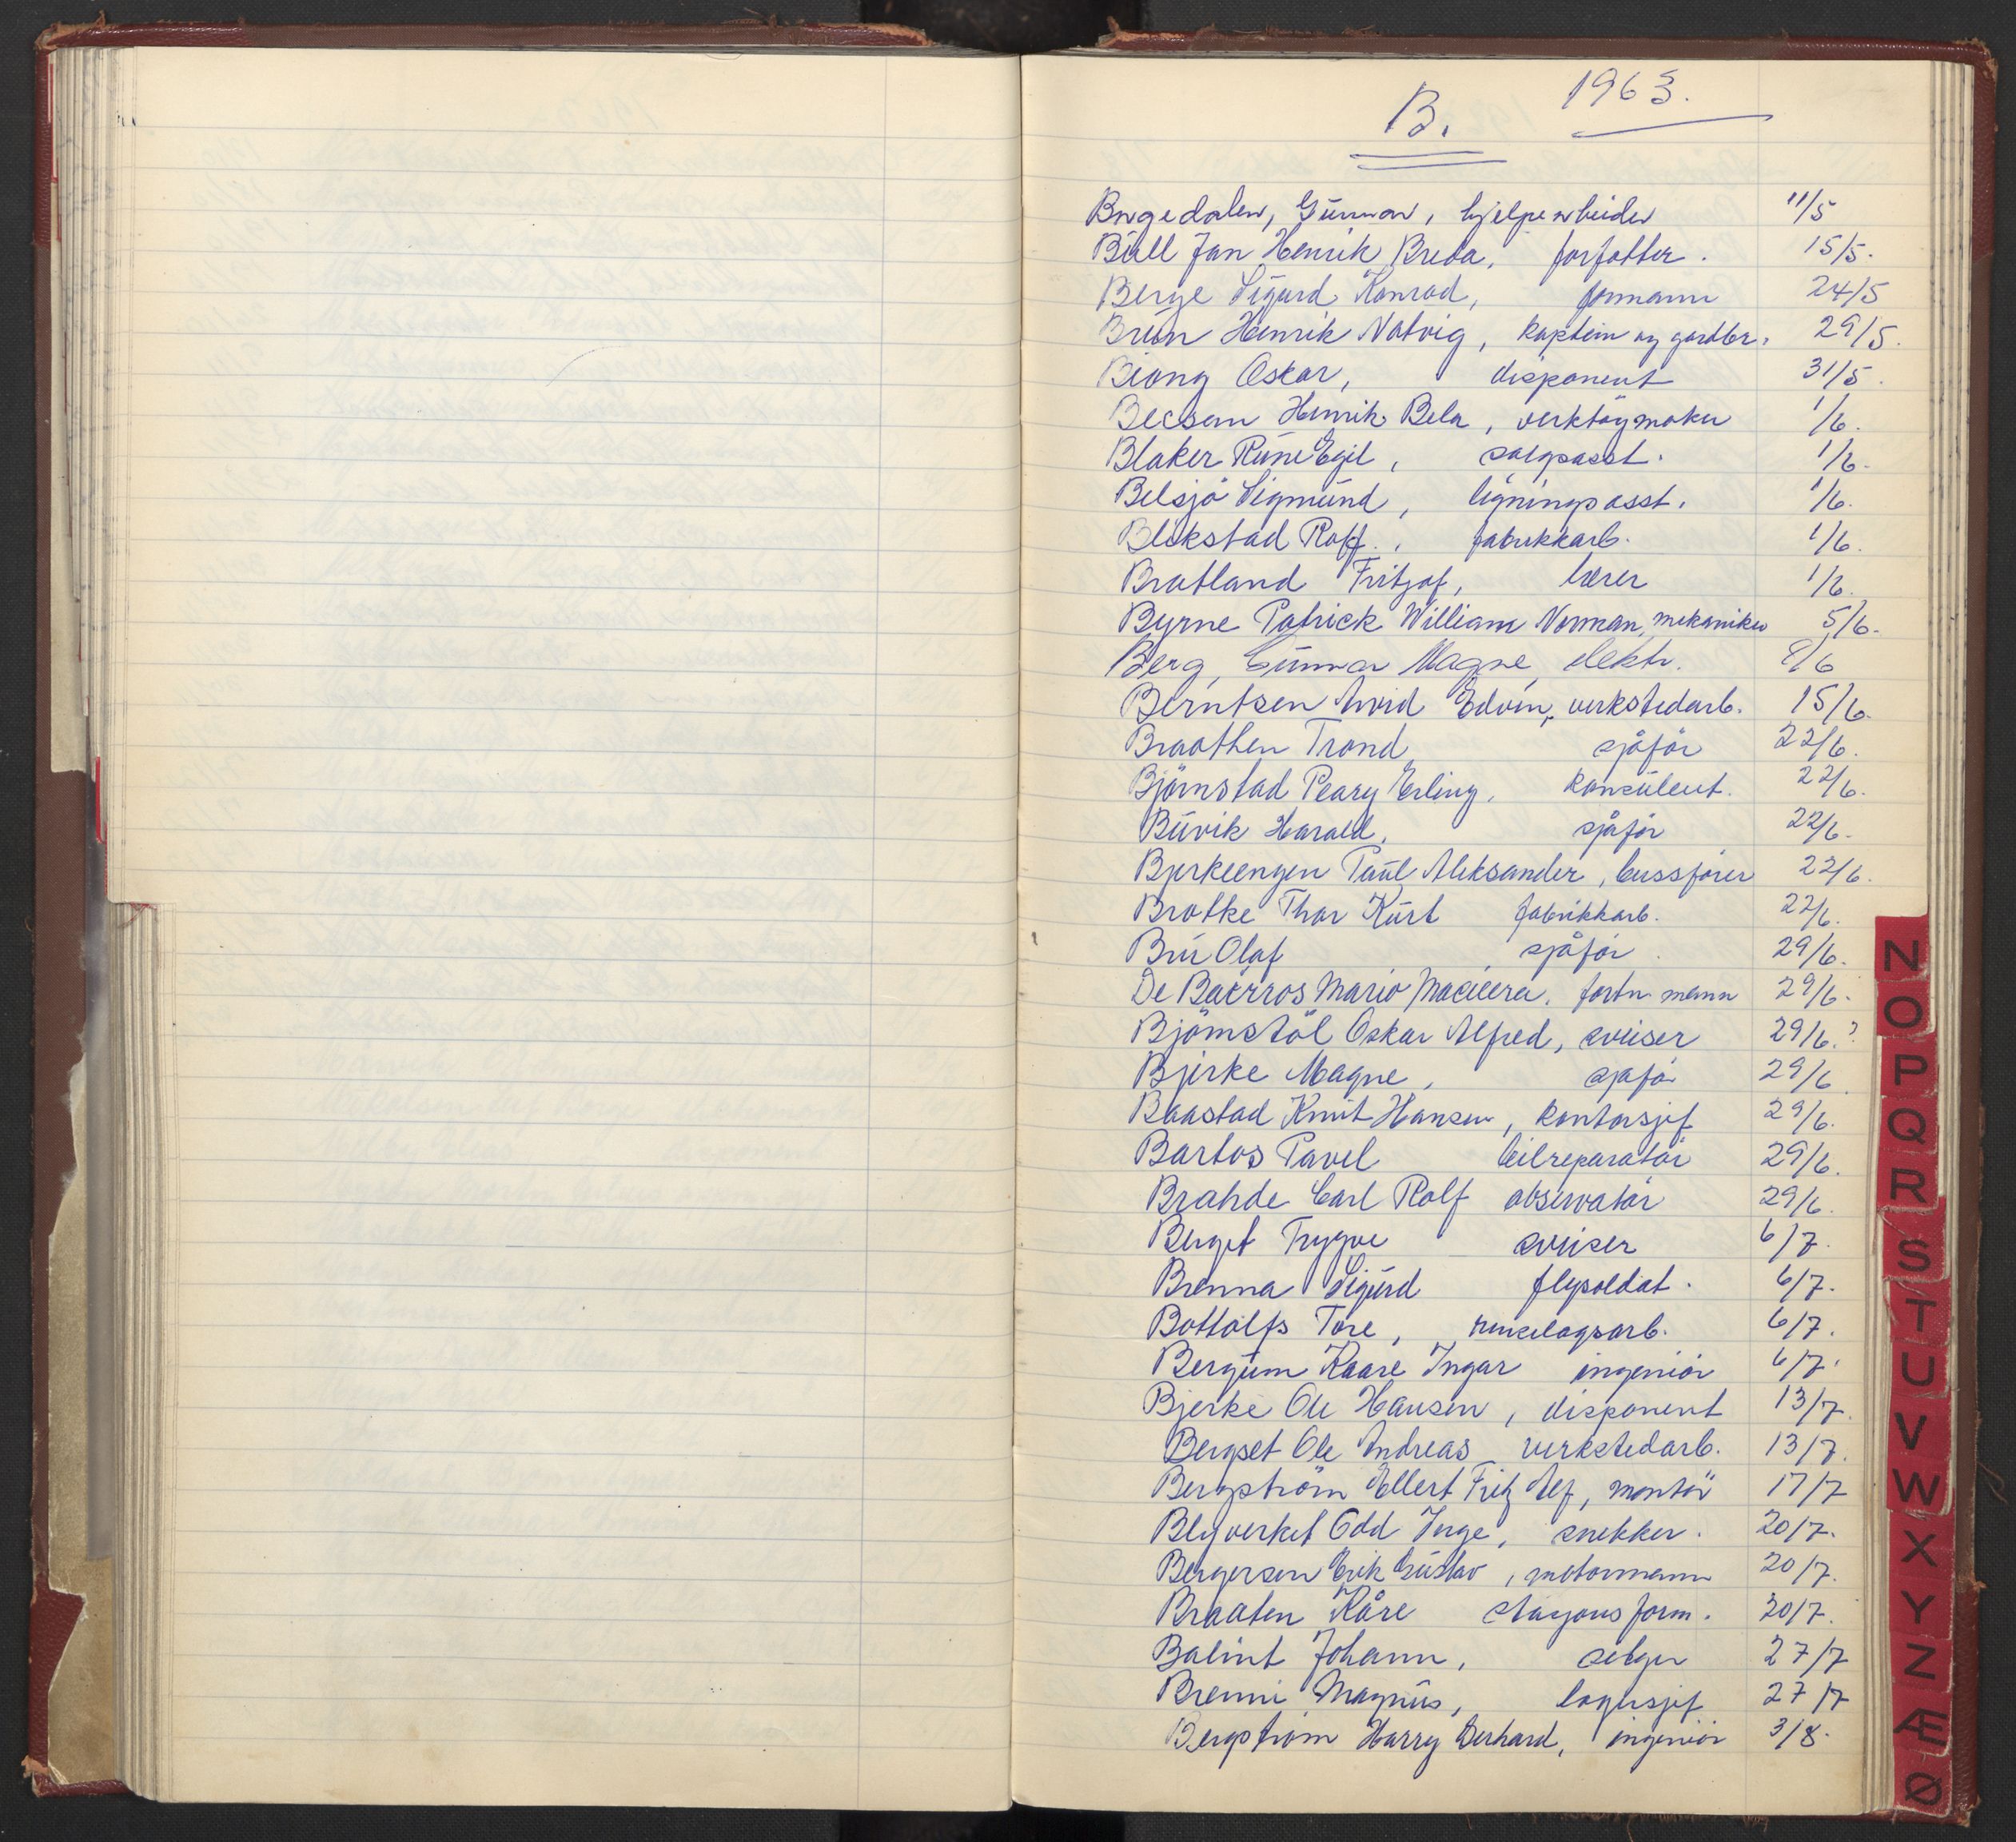 1963.
B.
Bagedalen, Gunnar, hjelpearbeider 11/5
Bull Jan Henrik Breda, forfatter. 15/5.
Berge Sigurd Konrad, formann 24/5
Brun Henrik Natvig, kaptein og gardbr. 29/5.
Biong Oskar, disponent 31/5.
Becsem Henrik Bela, verktøymaker 1/6.
Blaker Rune Egil, salgsasst. 1/6.
Belsjø Sigmund, ligningsasst. 1/6.
Blikstad Roff., fabrikkarb. 1/6.
Bratland Fritjof, lærer 1/6.
Byrne Patrick William Norman, mekaniker 5/6.
Berg, Gunnar Magne, elektr. 8/6
Berntsen Arvid Edvin, verkstedarb. 15/6.
Braathen Trond sjåfør 22/6.
Bjørnstad Peary Erling, konsulent. 22/6.
Buvik Harald, sjåfør 22/6.
Bjerkeengen Paul Aleksander, bussfører 22/6.
Bratke Thor Kurt fabrikkarb. 22/6.
Bru Olaf sjåfør. 29/6.
De Baerros Mario, fortn. mann 29/6.
Bjørnstøl Oskar Alfred, sveiser 29/6.?
Bjerke Magne, sjåfør 29/6
Baastad Knut Hansen, kontorsjef 29/6.
Bartos Pavel bilreparatør 29/6.
Brahde Carl Rolf observatør 29/6.
Berget Trygve sveiser 6/7.
Brenna Sigurd flysoldat. 6/7.
Bottolfs Tore, renselagsarb. 6/7.
Bergum Kaare Ingar ingeniør 6/7.
Bjerke Ole Hansen, disponent 13/7.
Bergset Ole Andreas verkstedarb. 13/7.
Bergstrøm Ellert Fritz Alf, montør 17/7
Blyverket Odd Inge, snekker. 20/7.
Bergersen Erik Gustav, motormann 20/7.
Braaten Kåre stasjonsform. 20/7.
Balint Johann, selger 27/7
Brenni Magnus, lagersjef 27/7
Bergstrøm Harry Gerhard, ingeniør 3/8.
N
O
P
Q
R
S
T
U
V
W
X
Y
Z
Æ
Ø